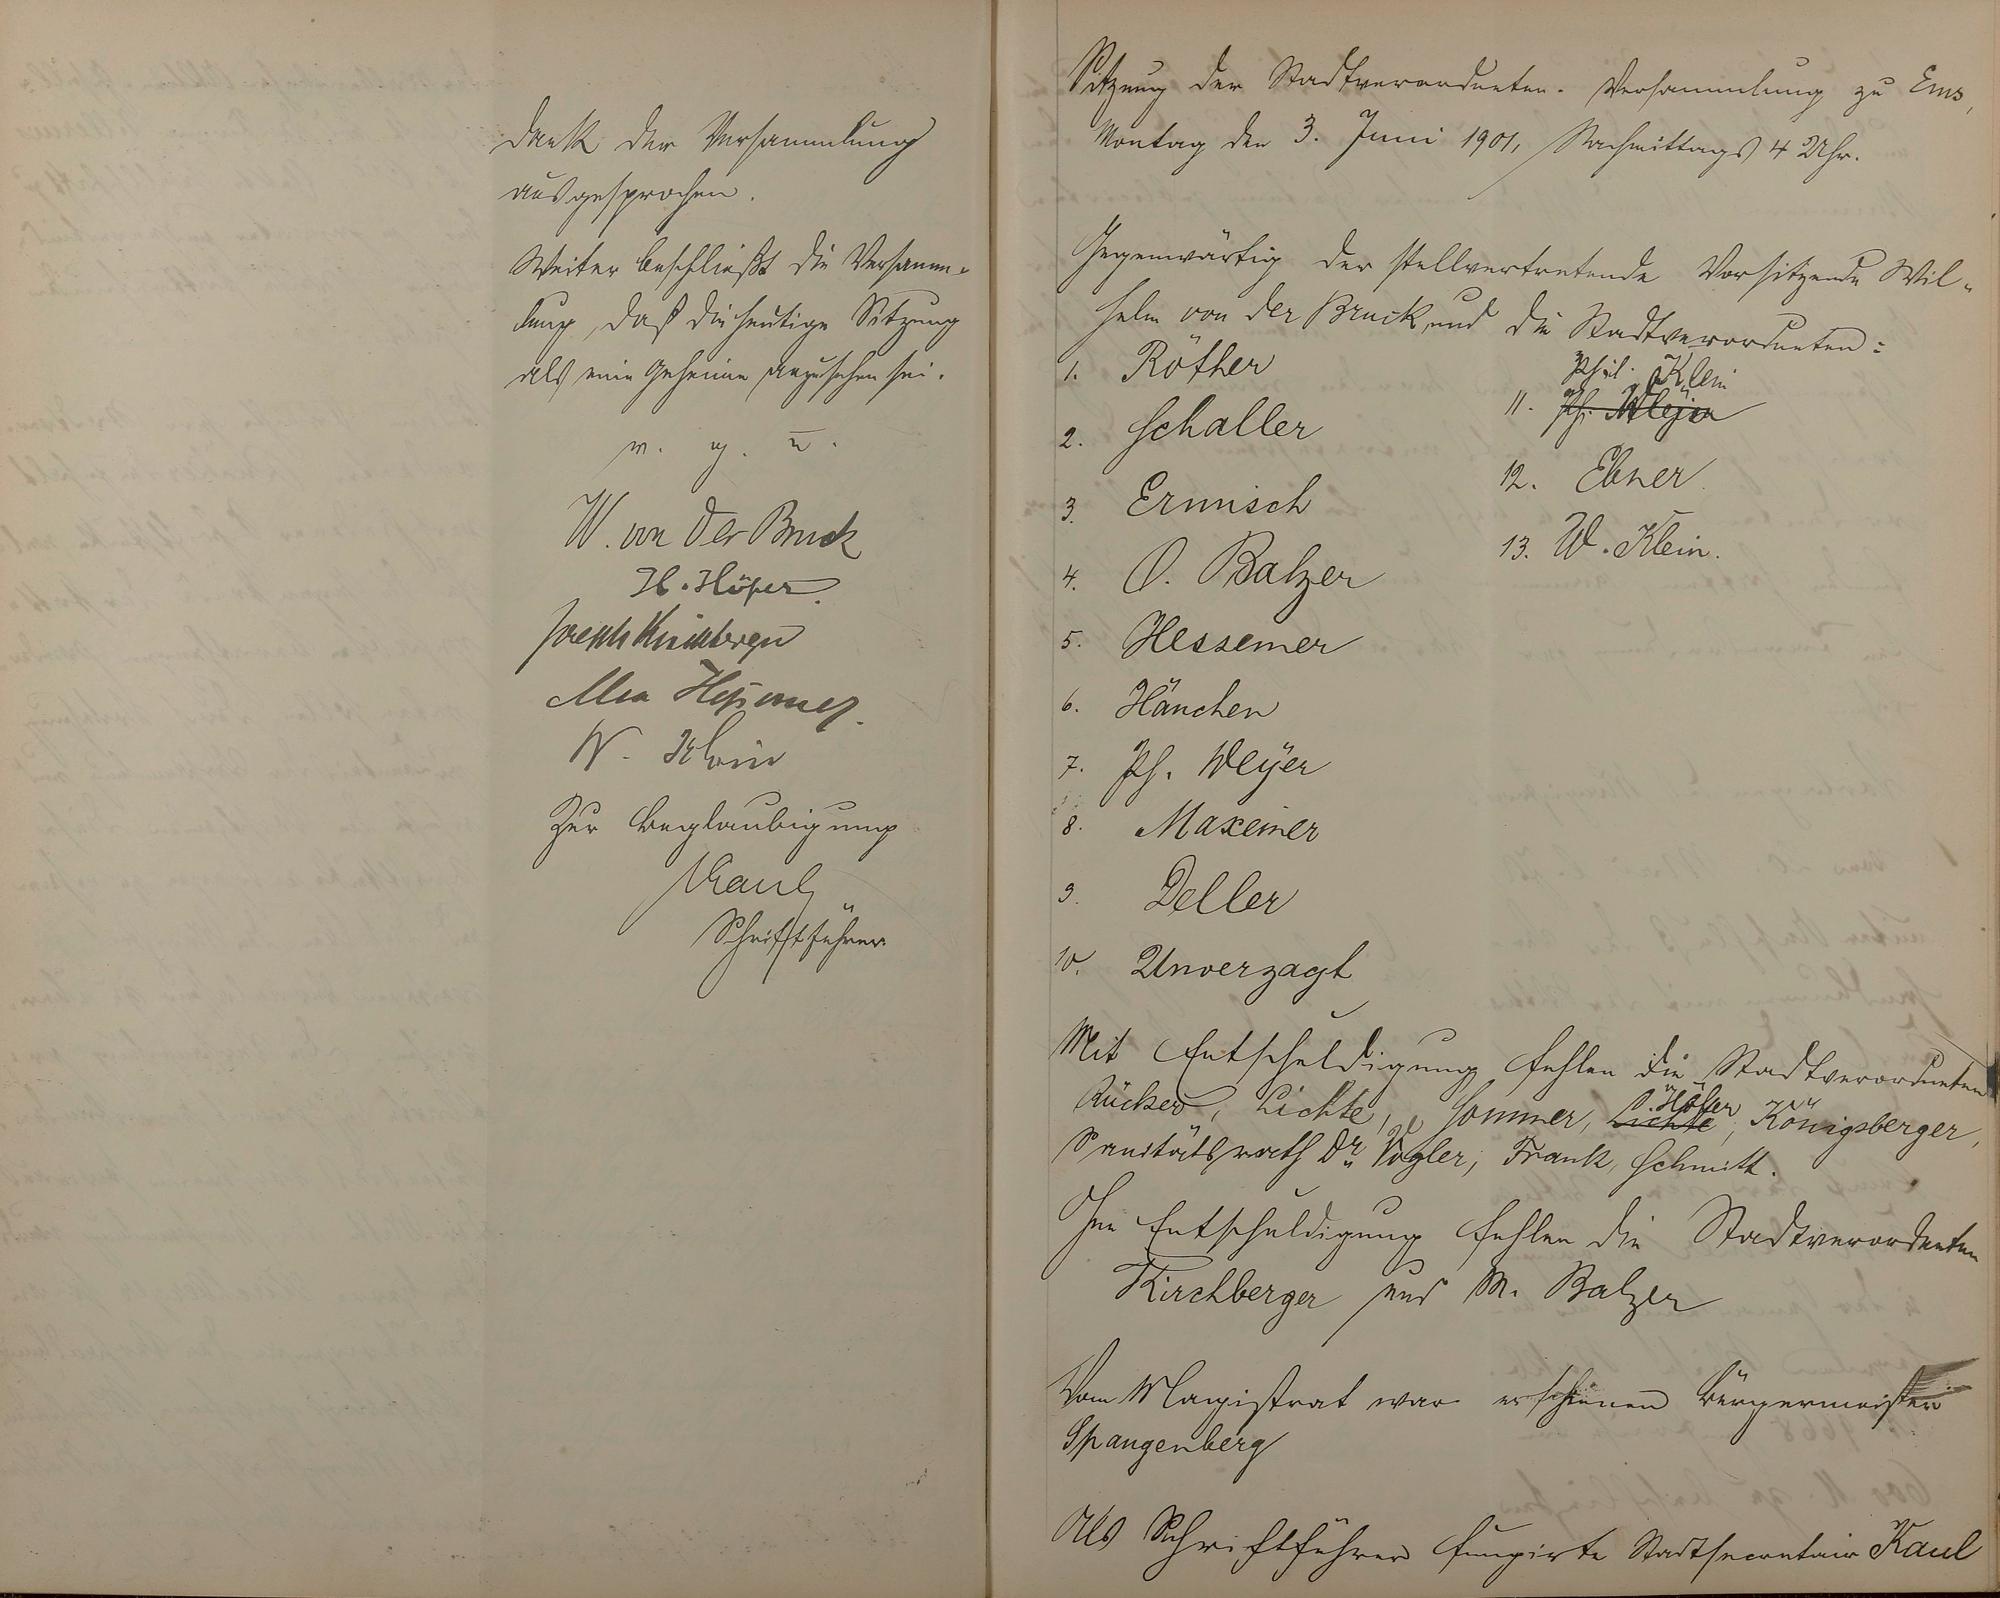 Dank der Versammlung
ausgesprochen.
Weiter beschließt die Versamm-
lung, daß die heutige Sitzung
als eine geheime anzusehen sei.
v. g. u.
W. von der Bruck
H. Höfer.
Joseph Kirchberger
Alex Hessemer.
W. Klein
Zur Beglaubigung
Kaul
Schriftführer
Sitzung der Stadtverordneten-Versammlung zu Ems,
Montag den 3. Juni 1901, Nachmittags 4 Uhr.
Gegenwärtig der stellvertretende Vorsitzende Wil-
helm von der Bruck, und die Stadtverordneten:
1. Röther
2. Schaller
3. Ermisch
4. O. Balzer
5. Hessemer
6. Hänchen
7. Ph. Weyer
8. Maxeiner
9. Deller
10. Unverzagt
Phil. Klein
11. Ph. Weyer
12. Ebner
13. W. Klein.
Mit Entschuldigung fehlen die Stadtverordneten
Rücker, Lichte, Sommer, Lichte Höfer, Königsberger,
Sanitätsrath Dr. Vogler, Frank, Schmitt.
Ohne Entschuldigung fehlen die Stadtverordneten
Kirchberger und M. Balzer
Vom Magistrat war erschienen Bürgermeister
Spangenberg
Als Schriftführer fungirte Stadtsecretair Kaul